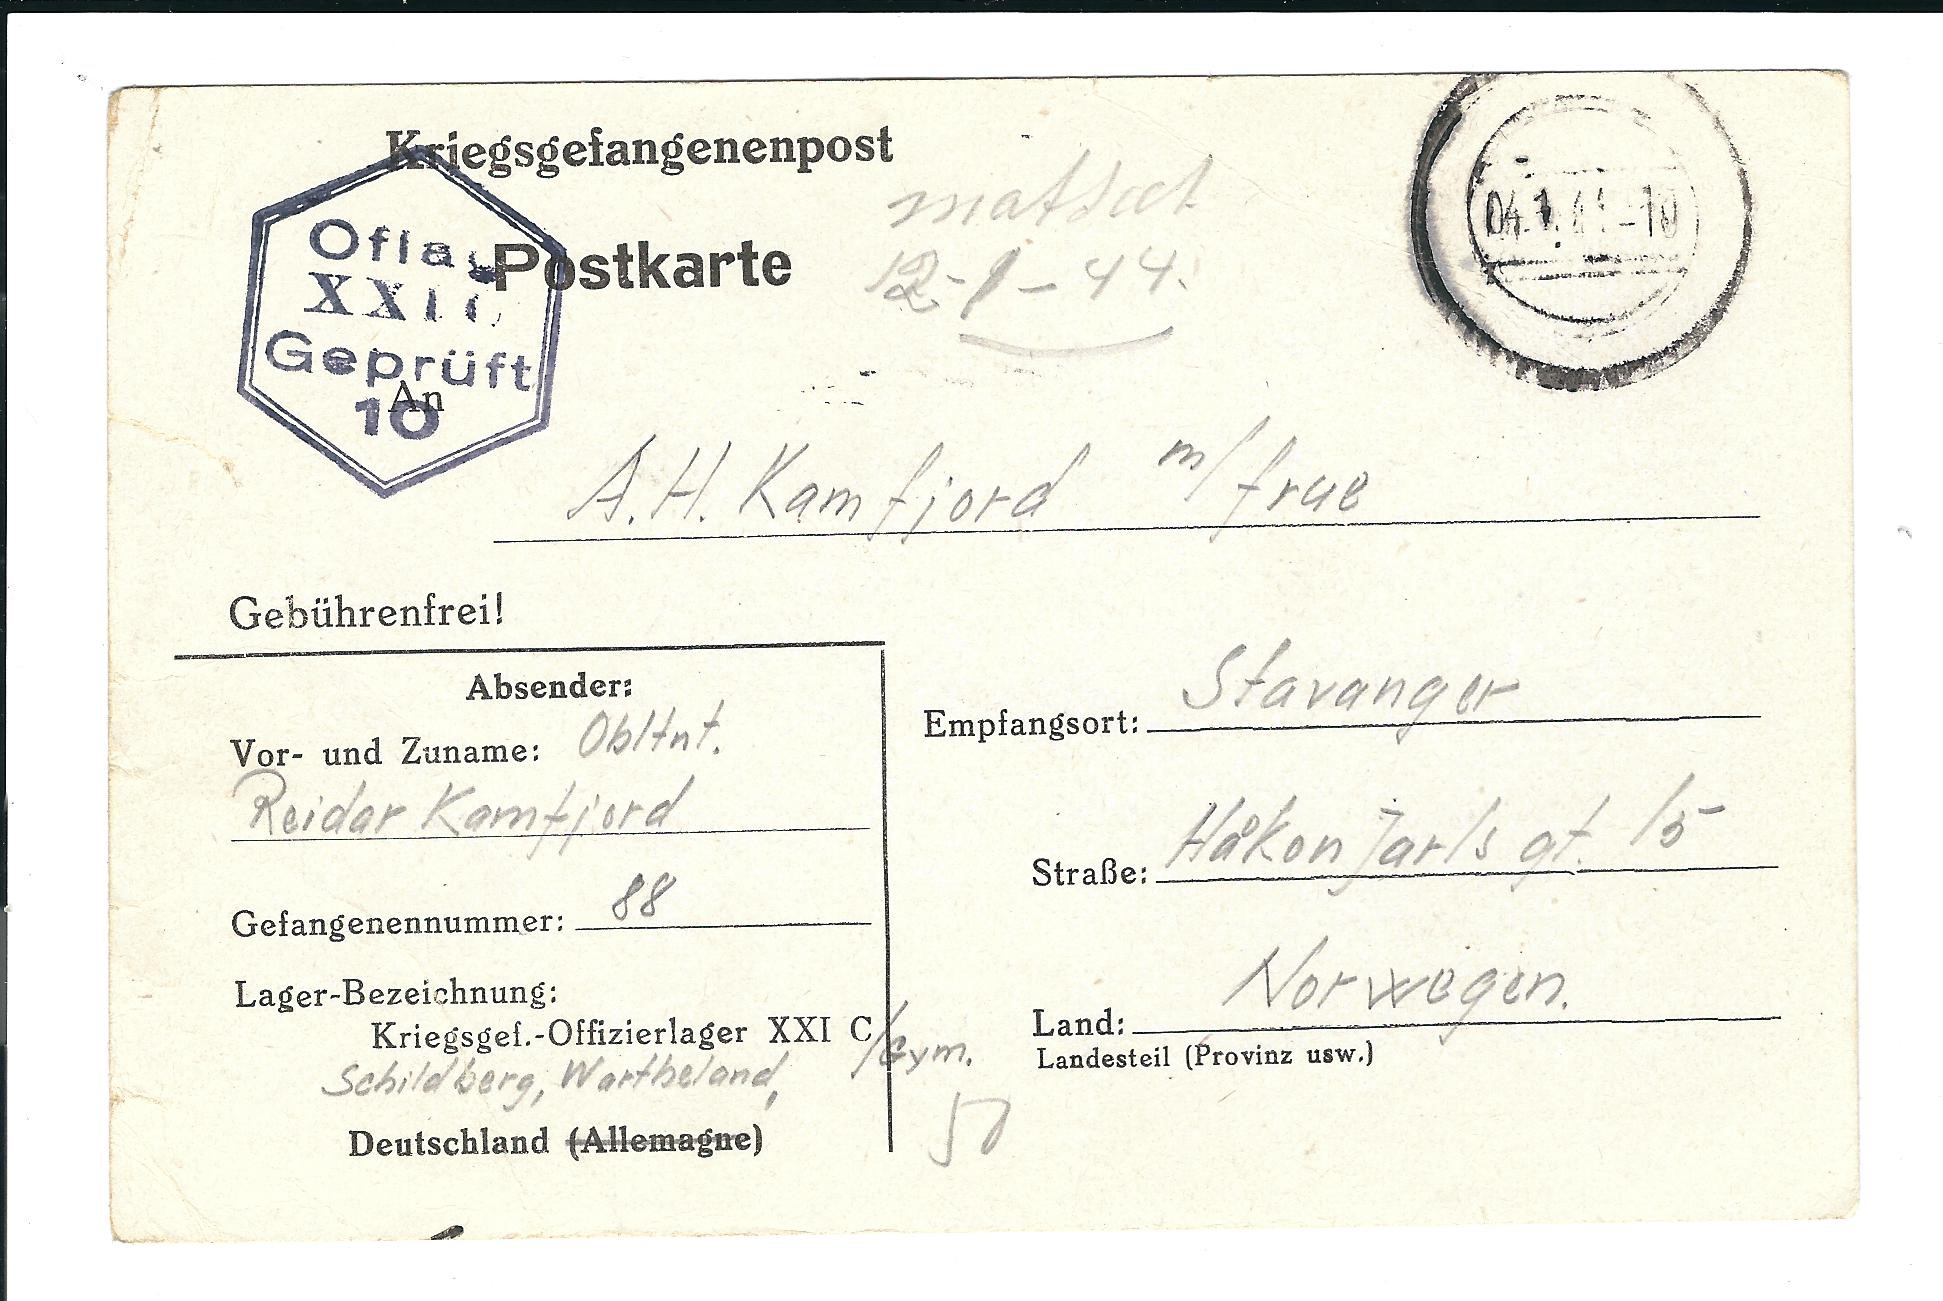 Kriegsgefangenenpost
Postkarte
Oflag
XXI C
Geprüft
10
12-1-44.
04.1.44-10
An
A.H. Kamfjord m/frue
Gebührenfrei!
Absender:
Vor- und Zuname: Obltnt.
Reidar Kamfjord
Gefangenennummer: 88
Lager-Bezeichnung:
Kriegsgef.-Offizierlager XXI C/Gym.
Schildberg, Wartheland,
Deutschland (Allemagne)
Empfangsort: Stavanger
Straße: Håkon Jarls gt. 15
Land: Norwegen.
Landesteil (Provinz usw.)